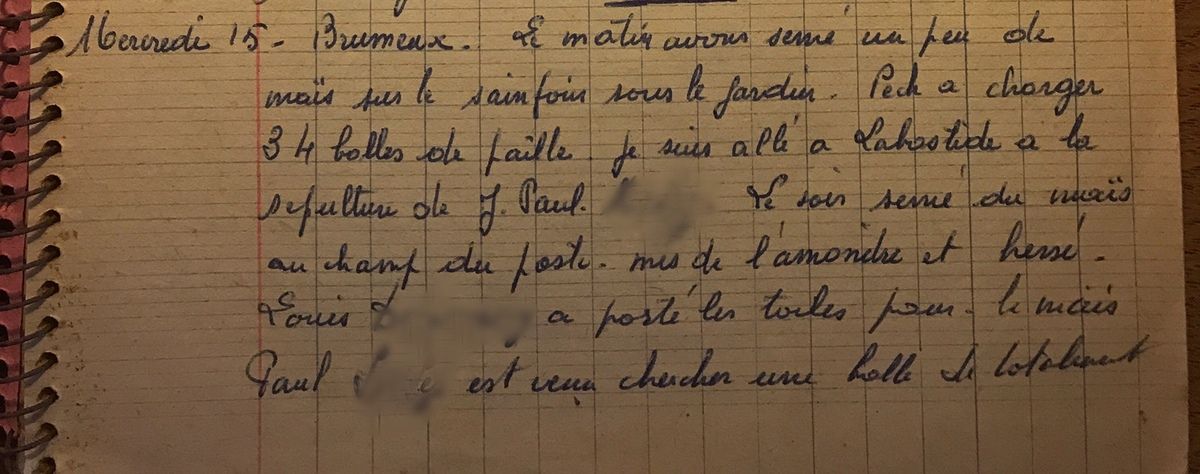 Mercredi 15 - Brumeux. Le matin avons semé un peu de
maïs sur le sainfoin sous le jardin. Pech a charger
34 balles de paille. je suis allé a Labastide a la
sepulture de J. Paul. Le soir semé du maïs
au champ du poste. mis de l'amondre et hersé.
Louis a porté les toiles pour le maïs
Paul est venu chercher une balle de